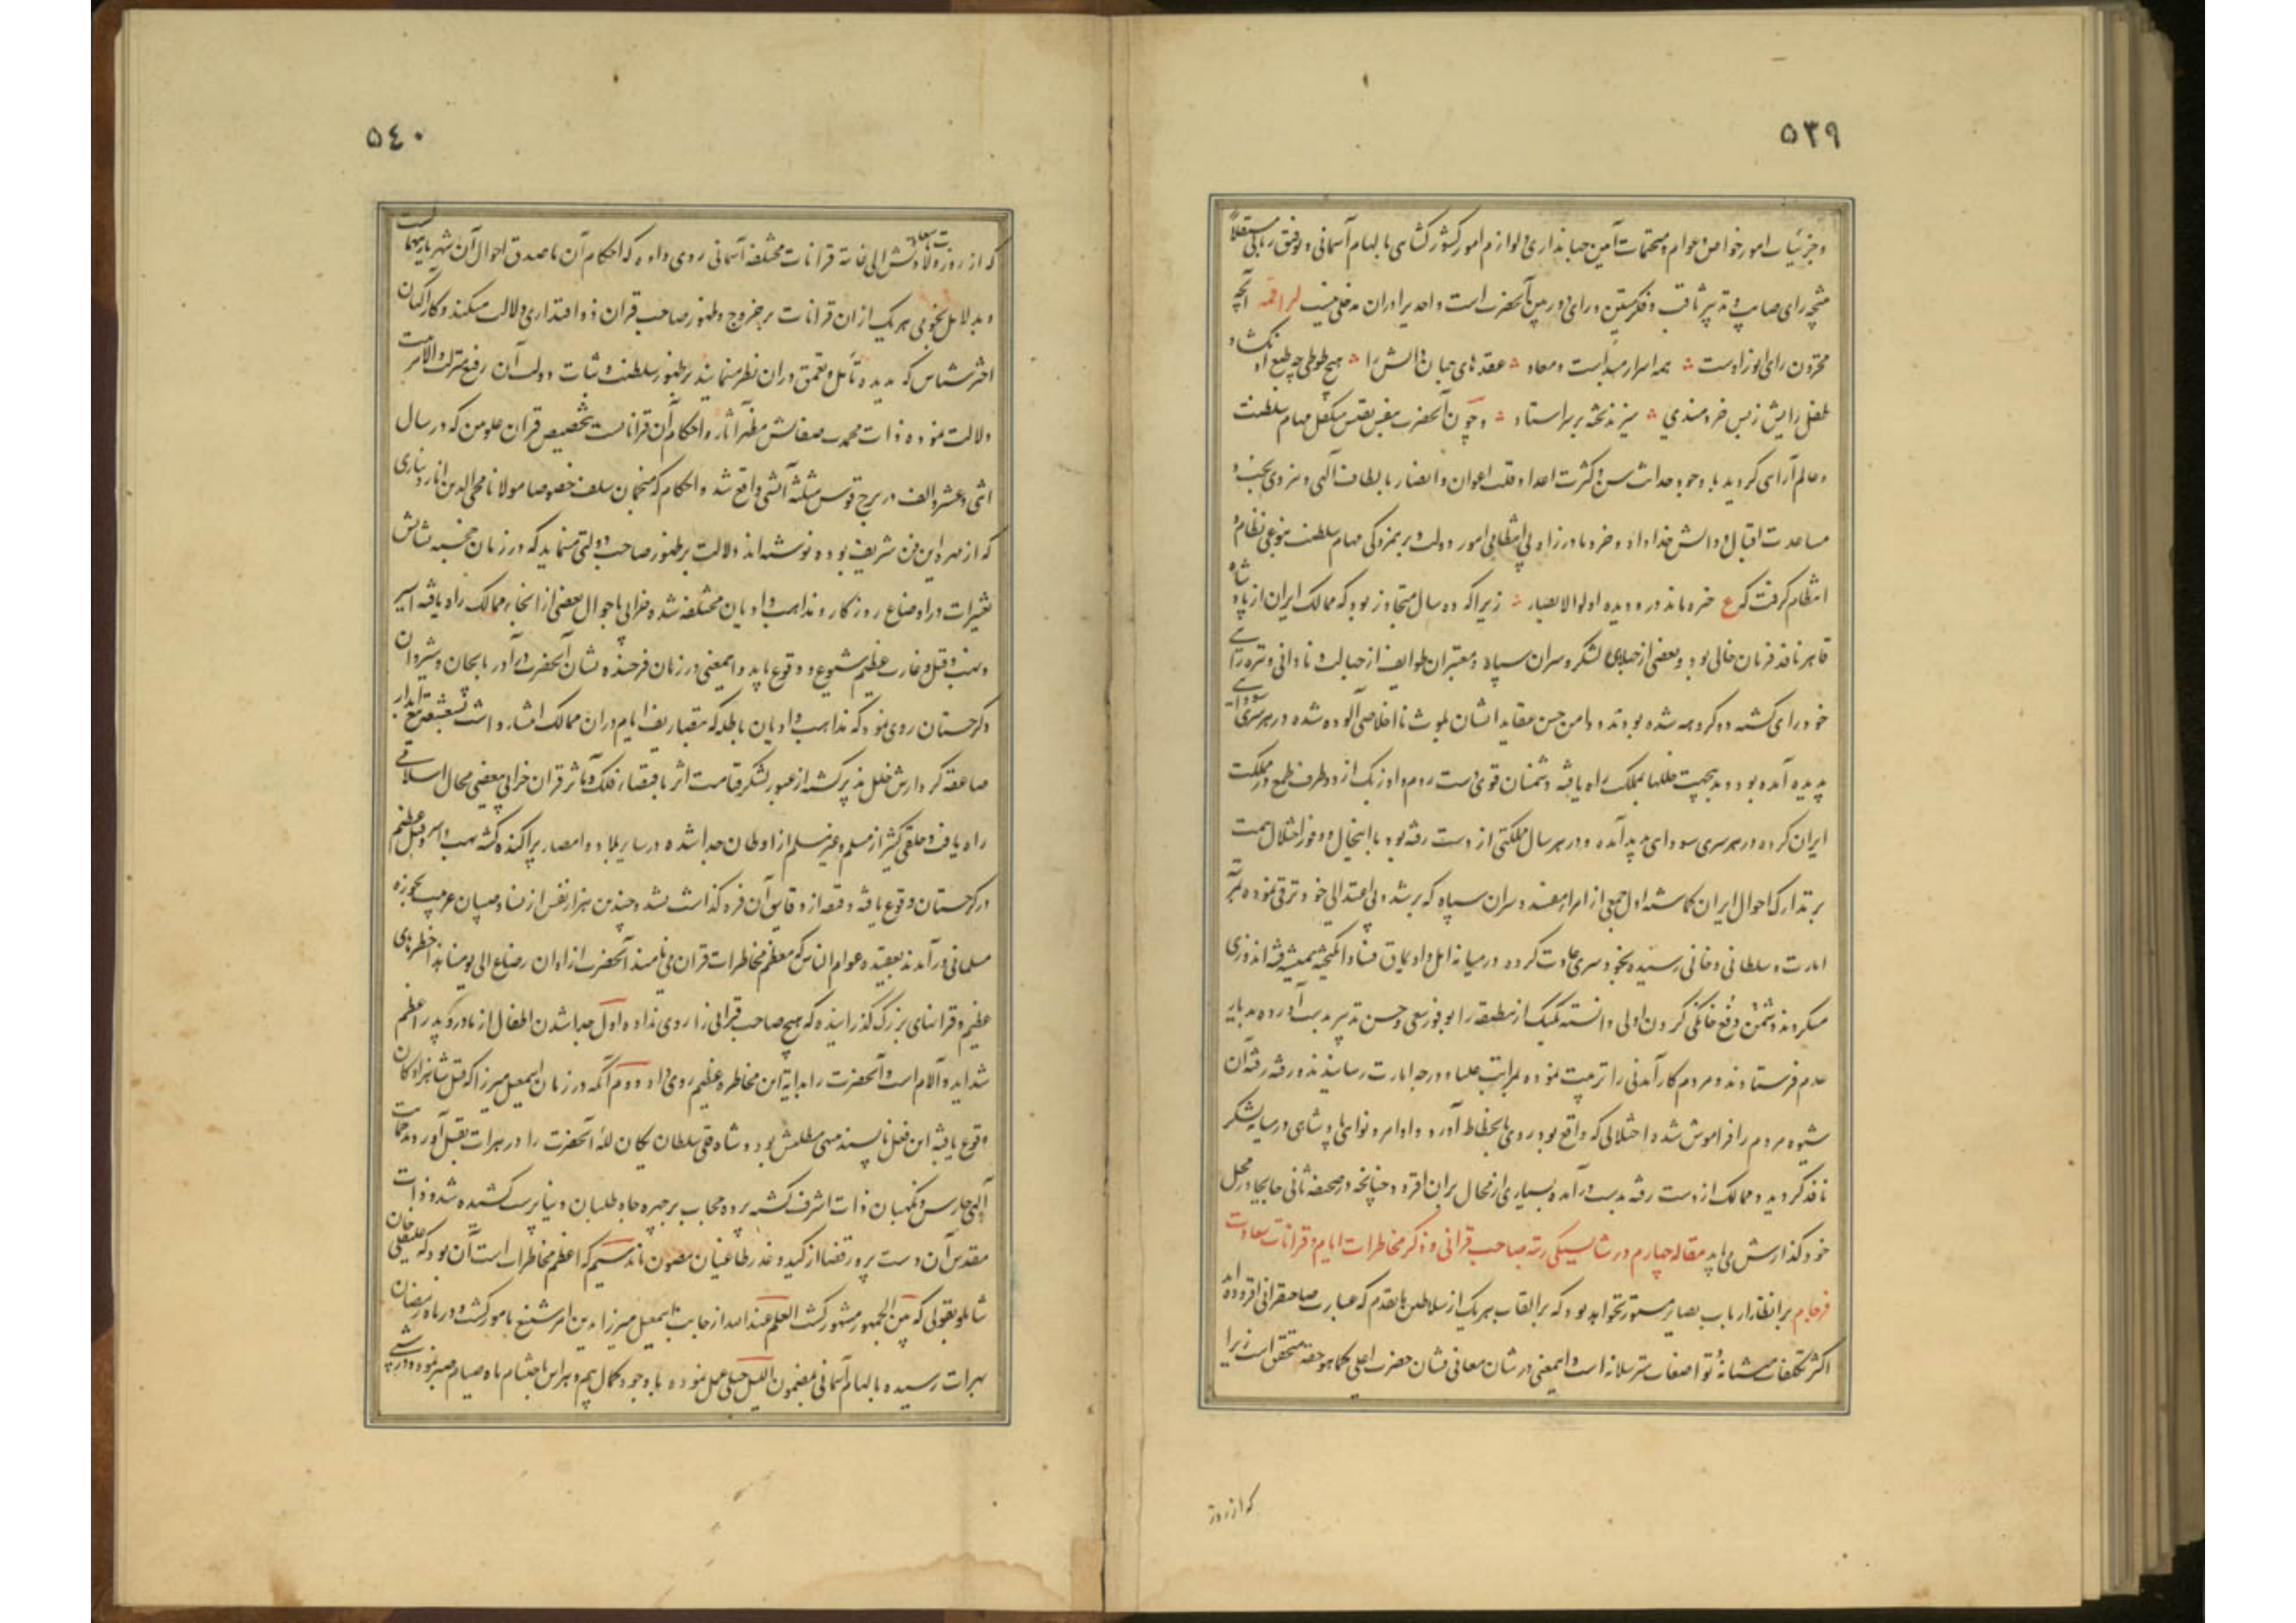 ٥٣٩
و جزئیات امور خواص و عوام و مختمات آیین جهانداری و لوازم امور کشورکشای بالهام آسمانی و توفیق ربانی مستقلاً
نتیجه رای صایب و تدبیر ثاقب و فکر متین و رای دوربین آنحضرت است و احدیرا در ان مدخلی نیست لراقمه آنچه
مخزون رای انور اوست همه اسرار مبداست و معاد عقدهای جهان دانش را هیچ طوطی چو طبع او نگشاد
طفل رایش ز بس خردمندی میزند تخته بر سر استاد و چون آنحضرت بنفس نفیس متکفل مهام سلطنت
و عالم آرای گردید با وجود حداثت سن و کثرت اعدا و قلت اعوان و انصار بالطاف آلهی و نیروی بخت و
مساعدت اقبال و دانش خداداد و خرد مادرزاد بی انتظامی امور دولت و برهمزدگی مهام سلطنت بنوعی نظام و
انتظام گرفت که ع خیره ماند در و دیده اولوا الابصار زیرا که ده سال متجاوز بود که ممالک ایران از پادشاه
قاهر نافذ فرمان خالی بود و بعضی از جهلای لشکر و سران سپاه و معتبران طوایف از جهالت و نادانی و تیره رایی
خودرای گشته دو گروهه شده بودند و دامن حسن عقاید ایشان بلوث نااخلاصی آلوده شده در هر سری سودایی
پدید آمده بود و بدینجهت خللها بملک راه یافته دشمنان قوی دست روم و اوزبک از دو طرف طمع در مملکت
ایران کرده در هر سری سودای پدید آمده و در هر سال مملکتی از دست رفته بود با اینحال و وفور اختلال همت
بر تدارک احوال ایران گماشته اول جمعی از امراء مفسد و سران سپاه که برشد و بی اعتدالی خود ترقی نموده بمرتبه
امارت و سلطانی و خانی رسیده بخود سری عادت کرده در میانه ایل و اویماق فساد انگیخته همیشه فتنه اندوزی
میکردند دشمن و دفع خانگی کردن اولی دانسته یک یک از منطبقه را بوفور سعی و حسن تدبیر بدست آورده بدیار
عدم فرستادند و مردم کارآمدنی را تربیت نموده بمراتب علیا و درجه امارت رسانیدند و رفته رفته آن
شیوه مردم را فراموش شده اختلالی که واقع بود روی بانحطاط آورد و اوامر و نواهی پادشاهی در میان لشکر
نافذ گردید و ممالک از دست رفته بدست درآمده بسیاری از محال بر آن افزود چنانچه در صحیفه ثانی جابجا در محل
خود گذارش می یابد مقاله چهارم در شایستگی رتبه صاحب قرانی و ذکر مخاطرات ایام و قرانات سعادت
فرجام بر انظار ارباب بصایر مستور نخواهد بود که بر القاب هر یک از سلاطین ماتقدم که عبارت صاحبقرانی افزوده اند
اکثر تکلفات منشیانه و تواضعات مترسلانه است و اینمعنی در شان معانی نشان حضرت اعلی کما هو حقه متحقق است زیرا
که از روز
٥٤٠
که از روز ولادت سعادتش الی غایة قرانات مختلفه آسمانی روی داده که احکام آن ماصدق احوال آن شهریار بیهمتاست
و بدلایل نجومی هر یک ازان قرانات بر خروج و ظهور صاحب قران ذو اقتداری دلالت میکند و کارآگهان
اخترشناس که بدیده تأمل و تعمق در ان نظر مینمایند بر ظهور سلطنت و ثبات دولت آن رفیع منزلت والامرتبت
دلالت نموده ذات محمدت صفاتش مظهر آثار و احکام آن قراناتست بتخصیص قران علویین که در سال
اثنی و عشر و الف در برج قوس مثلثه آتشی واقع شد و احکام که منجمان سلف خصوصا مولانا محیی الدین اناردباری
که از مهره این فن شریف بوده نوشته اند دلالت بر ظهور صاحب دولتی مینماید که در زمان خجسته نشانش
تغییرات در اوضاع روزگار و مذاهب و ادیان مختلفه شده خرابی باحوال بعضی از انحاء ممالک راه یافته اسیر
و نهب و قتل و غارت عظیم شیوع و وقوع یابد و اینمعنی در زمان فرخنده نشان آنحضرت در آذربایجان و شیروان
و گرجستان روی نمود که مذاهب و ادیان باطله که بتصاریف ایام در ان ممالک انتشار داشت بشعشعه تیغ آبدار
صاعقه کردارش خلل پذیر گشته از عبور لشکر قیامت اثر باقتضاء فلک و تأثر قران خرابی ببعضی محال اسلامی
راه یافت و خلقی کثیر از مسلم و غیر مسلم از اوطان جدا شده در سایر بلاد و امصار پراکنده گشته نهب و اسر و قتل عظیم
در گرجستان وقوع یافته دقیقه از دقایق آن فروگذاشت نشد و چندین هزار نفس از نساء و صبیان غریب بحوزه
مسلمانی درآمدند بعقیده عوام الناس که معظم مخاطرات قران می نامند آنحضرت از اوان رضاع الی یومنا بذا خطرهای
عظیم و قرانهای بزرگ گذرانیده که هیچ صاحب قرانی را روی نداده اول جدا شدن اطفال از مادر و پدر اعظم
شداید و آلام است و آنحضرت را بدایة این مخاطره عظیم روی داد دوم آنکه در زمان اسمعیل میرزا که قتل شاهزادکان
وقوع یافته این فعل ناپسند منتهی مطلبش بود و شاه قلی سلطان یکان لله آنحضرت را در هرات بقتل آوردند حمایت
آلهی حارس و نگهبان ذات اشرف گشته پرده حجاب بر چهره جاه طلبان دنیا پرست کشیده شد و ذات
مقدس آن دست پرور قضا از کید و غدر طاغیان مصون ماند سیم که اعظم مخاطرات است آن بود که علیقلی خان
شاملو بقولی که بین الجمهور مشهور گشت العلم عندالله از جانب اسمعیل میرزا بدین امر شنیع مامور گشت و در ماه رمضان
بهرات رسیده بالهام آسمانی بمضمون اللیل حبلی عمل نموده باوجود کمال بیم و هراس باختتام ماه صیام صبر نموده